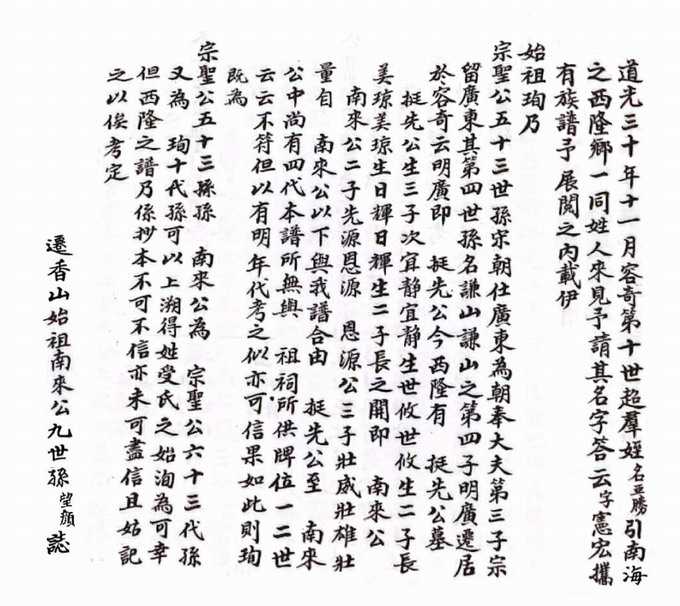 道光三十年十一月容奇第十世超羣姪名亞勝引南海
之西隆鄉一同姓人來見予請其名字答云字憲宏攜
有族譜予展閱之內載伊
始祖珣乃
宗聖公五十三世孫宋朝仕廣東為朝奉大夫第三子宗
留廣東其第四世孫名謙山謙山之第四子明廣遷居
於容奇云明廣即 挺先公今西隆有 挺先公墓
挺先公生三子次宜静宜静生世攸世攸生二子長
美琼美琼生日輝日輝生二子長之開即 南來公
南來公二子先源恩源 恩源公三子壯威壯雄壯
量自 南來公以下與我譜合由 挺先公至 南來
公中尚有四代本譜所無與 祖祠所供牌位一二世
云云不符但以有明年代考之似亦可信果如此則珣
既為
宗聖公五十三孫孫 南來公為 宗聖公六十三代孫
又為 珣十代孫可以上溯得姓受氏之始洵為可幸
但西隆之譜乃係抄本不可不信亦未可盡信且姑記
之以俟考定
遷香山始祖南來公九世孫望顏誌